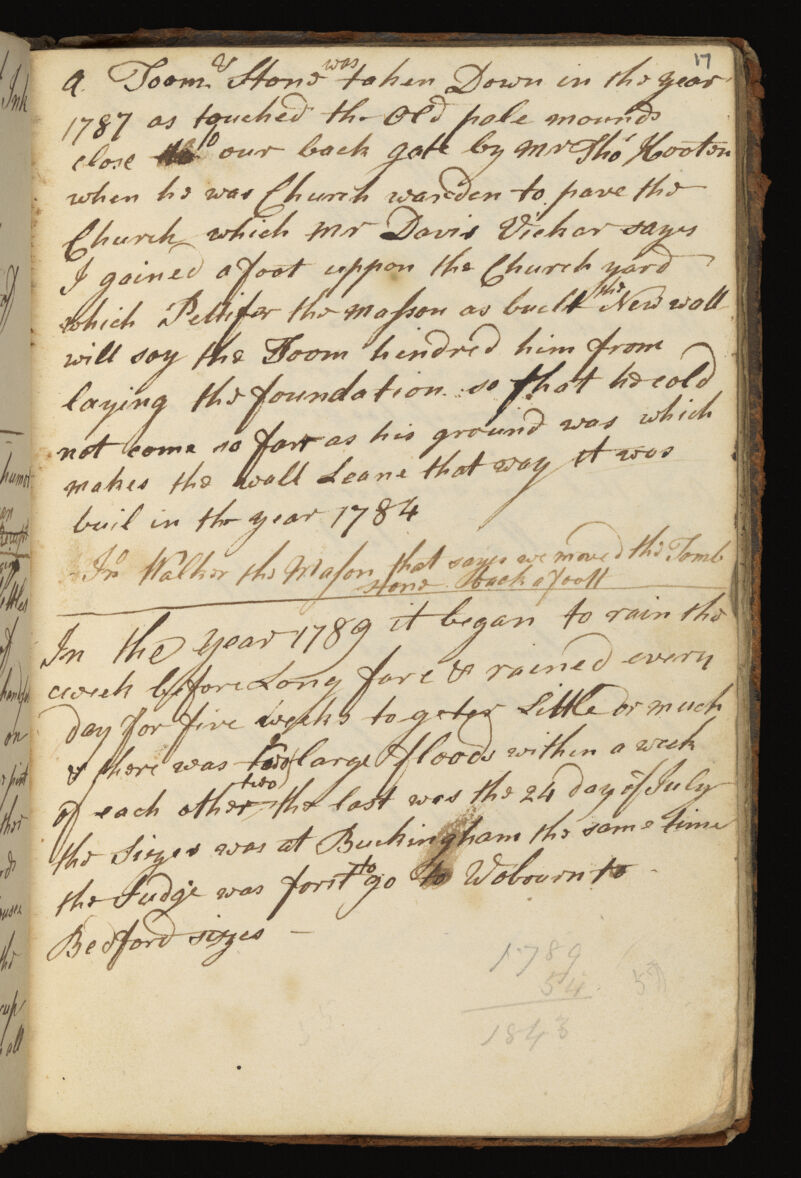 17
a Toom Stone was taken Down in the year
1787 as touched the Old pale mounds
close to our back gate by Mr Tho Hooton
when he was Church warden to pave the
Church which Mr Davis Vickar says
I gained a foot uppon the Church yard
which Pettifer the masson as buelt the New wall
will say the Toom hindred him from
laying the foundation so that he cold
not come so farr as his ground was which
makes the wall Leane that way it was
buil in the year 1784
Jno Walker the Mason that says we moved the Tomb
stone back a foott
In the year 1789 it began to rain the
week before Long fare & rained every
day for five weeks to geter Little or much
& there was two large floods within a week
two
of each other the last was the 24 day of July
the sizes was at Buckingham the same time
the Judge was forst to go to Wobourn to
Bedford sizes —
1789
54
1843